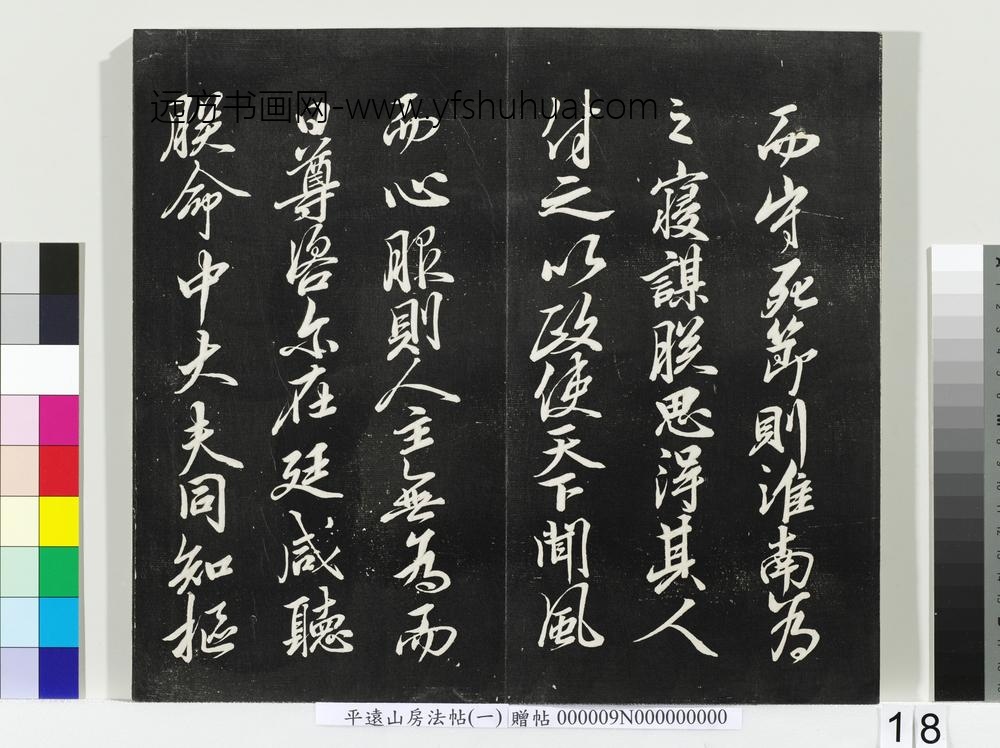 远方书画网-www.yfshuhua.com
而守死節則淮南為
之寢謀朕思得其人
付之以政使天下聞風
而心服則人主無為而
日尊咨尔在廷咸聽
朕命中大夫同知樞
平遠山房法帖(一) 贈帖 000009N000000000
18